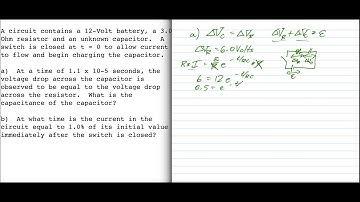 A circuit contains a 12-Volt battery, a 3.0
Ohm resistor and an unknown capacitor. A
switch is closed at t = 0 to allow current
to flow and begin charging the capacitor.
a) At a time of 1.1 x 10-5 seconds, the
voltage drop across the capacitor is
observed to be equal to the voltage drop
across the resistor. What is the
capacitance of the capacitor?
b) At what time is the current in the
circuit equal to 1.0% of its initial value
immediately after the switch is closed?
a) ΔVc = ΔVR ΔVR + ΔVc = ε
ΔVR = 6.0 Volts
6 = 12 e^-t/RC
0.5 = e